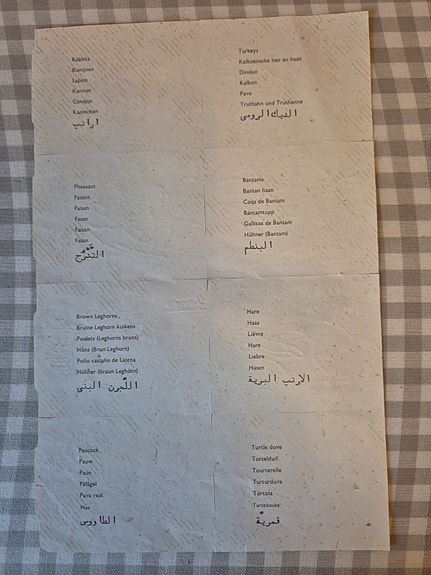 Rabbits
Konijnen
Lapins
Kaniner
Conejos
Kaninchen
ارانب
Turkeys
Kalkoensche hen en haan
Dindon
Kalkon
Pavo
Truthahn und Truthenne
الديك الرومى
Pheasant
Fazant
Faisan
Fasan
Faisan
Fasan
التدرج
Bantams
Bantan haan
Coqs de Bantam
Bantamtupp
Gallitos de Bantam
Hühner (Bantam)
البنطم
Brown Leghorns
Bruine Leghorn kuikens
Poulets (Leghorns bruns)
Höns (Brun Leghorn)
Pollo castaño de Liorna
Hühner (braun Leghorn)
اللجرن البنى
Hare
Haas
Lièvre
Hare
Liebre
Hasen
الارنب البرية
Peacock
Pauw
Paon
Påfågel
Pavo real
الطاووس
Turtle dove
Tortelduif
Tourterelle
Turturduva
Tórtola
Turteltaube
قمرية